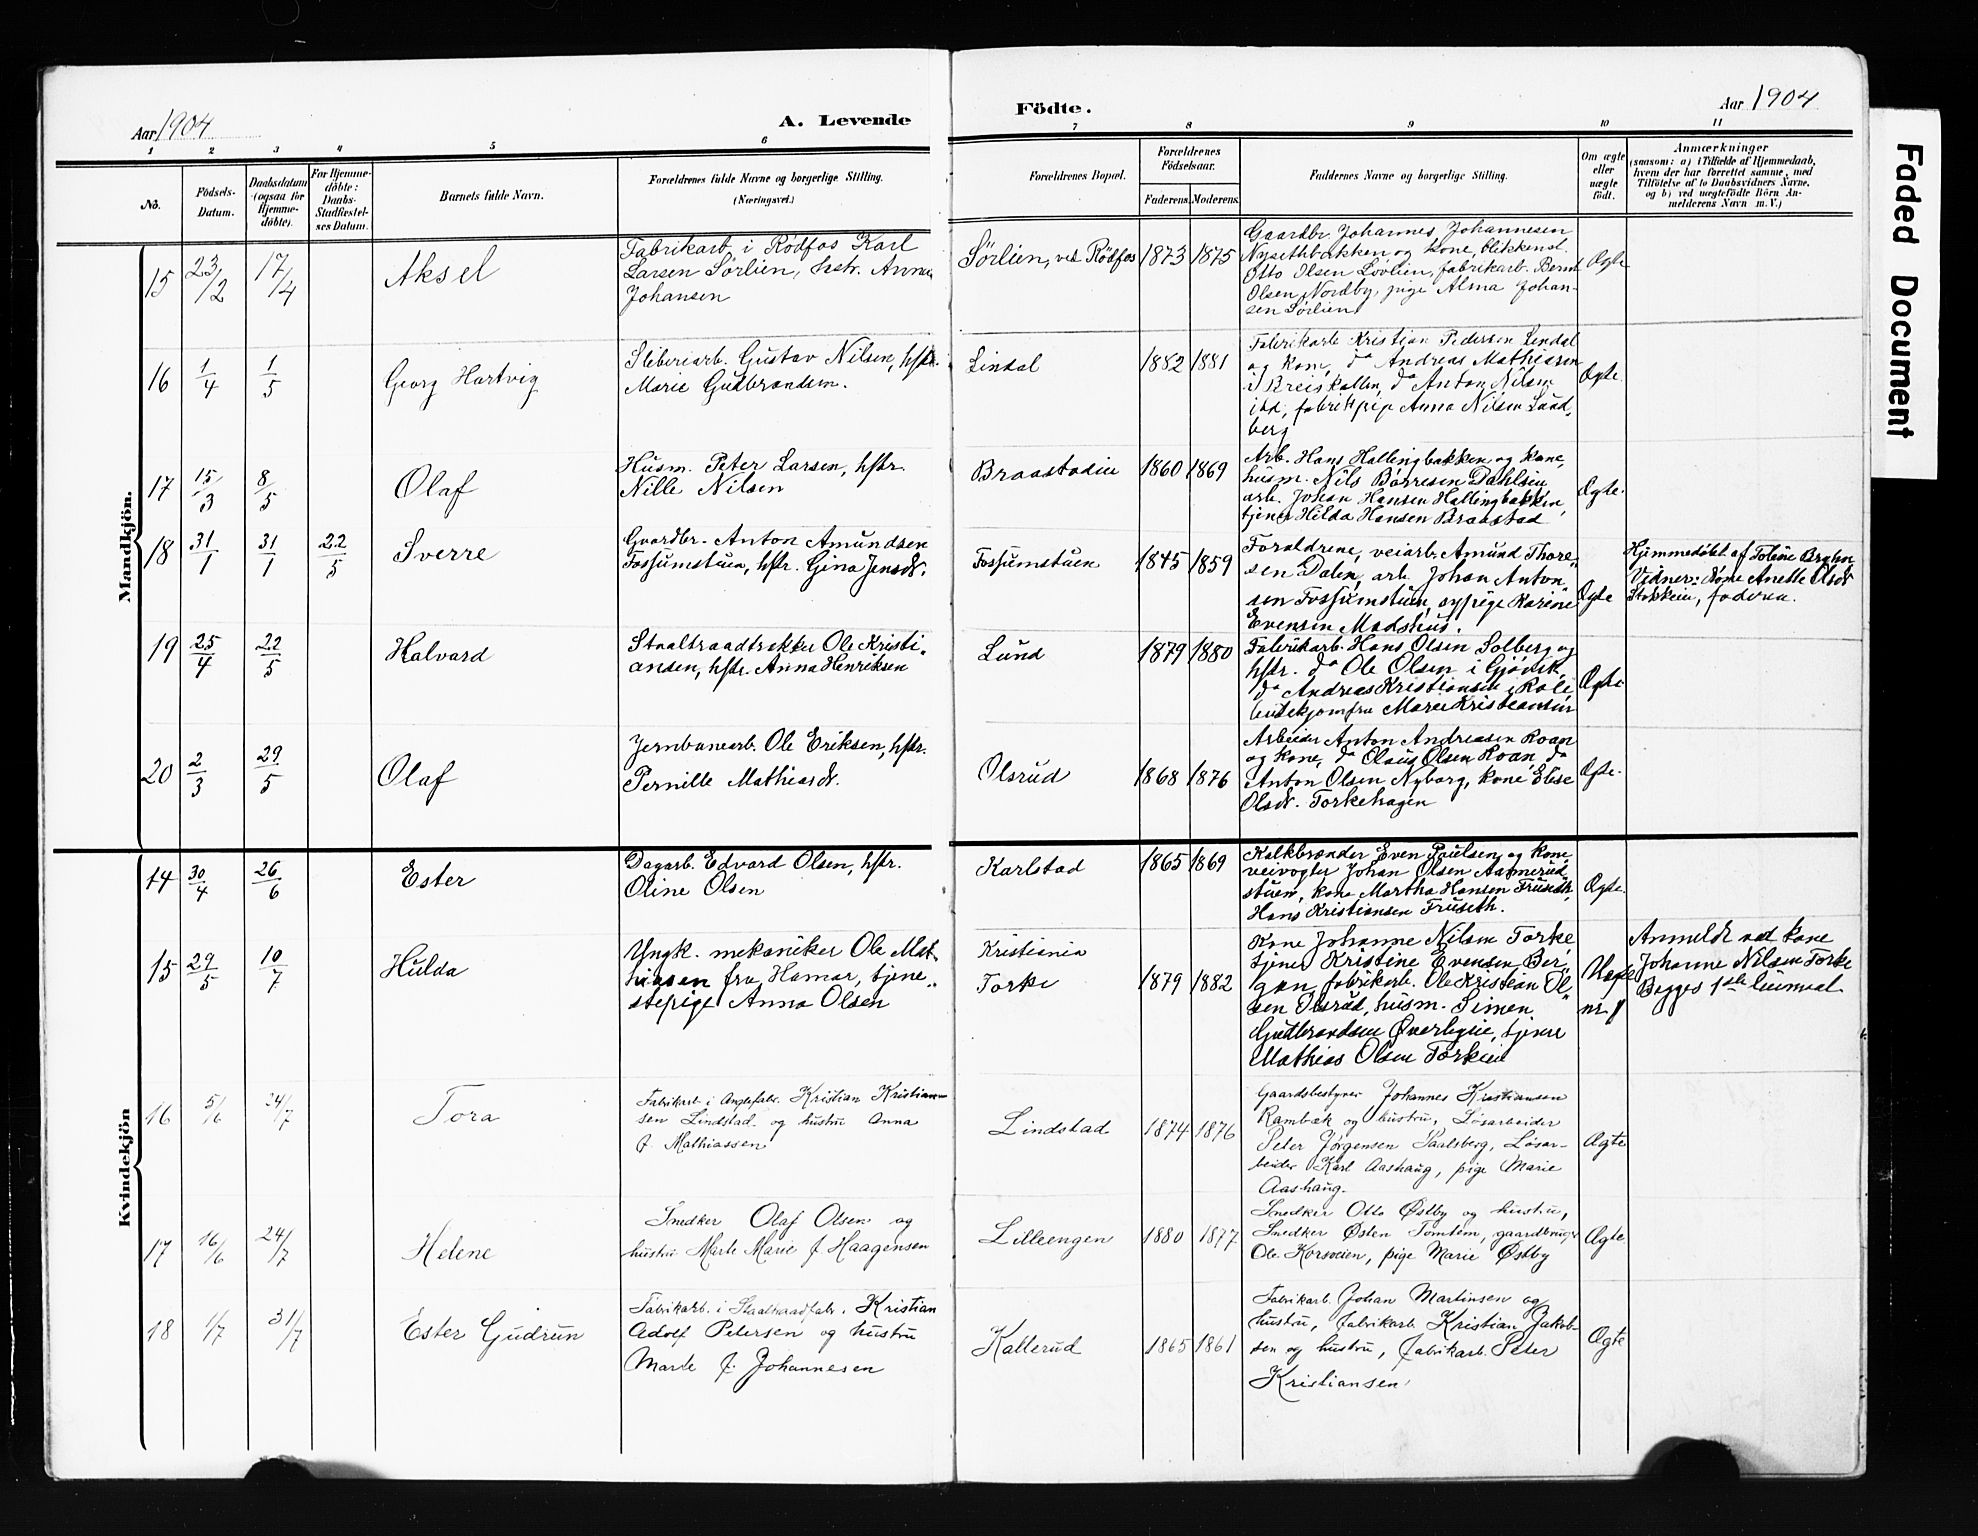 Aar 1904
A. Levende
Födte.
Aar 1904
Faded Document
1 2 3 4 5 6 7 8 9 10 11
No.
Födsels-Datum.
Daabsdatum (ogsaa for Hjemme-döbte).
For Hjemme-döbte: Daabs-Stadfæstel-ses Datum.
Barnets fulde Navn.
Forældrenes fulde Navne og borgerlige Stilling. (Næringsvei.)
Forældrenes Bopæl.
Forældrenes Födselsaar.
Faderens. Moderens.
Faddernes Navne og borgerlige Stilling.
Om ægte eller uægte födt.
Anmærkninger
(saasom: a) i Tilfælde af Hjemmedaab,
hvem der har forrettet samme, med
Tilföielse af to Daabsvidners Navne,
og b) ved uægtefödte Börn An-
melderens Navn m. V.)
Mandkjön.
15 23/2 17/4 Aksel
Fabrikarb. i Rödfos Karl
Larsen Sørlien, hstr. Anna
Johansen
Sørlien, ved Rödfos 1873 1875
Gaardbr. Johannes Johannesen
Nysethbakken og kone, blikkensl.
Otto Olsen Lovlien, fabrikarb. Bernt
Olsen Nordby, pige Alma Johan-
sen Sørlien
Ægte
16 1/4 1/5 Georg Hartvig
Sliberiarb. Gustav Nilsen, hstr.
Marie Gudbrandsen.
Lindal 1882 1881
Fabrikarb Kristian Pedersen Lindal
og kone, do Andreas Mathiasen
i Breiskallen, do Anton Nilsen
ibd, fabrikpige Anna Nilsen Lund-
berg
Ægte
17 15/3 8/5 Olaf
Husm. Peter Larsen, hstr.
Nille Nilsen
Braastadlie 1860 1869
Arb. Hans Hallingbakken og kone,
husm. Nils Börresen Dahlsein
arb. Johan Hansen Hallingbakken,
tjener Hilda Hansen Braastad
Ægte.
18 31/1 31/1 22/5 Sverre
Gaardbr. Anton Amundsen
Fossumstuen, hstr. Gina Jensdr.
Fossumstuen 1845 1859
Foraldrene, veiarb. Amund Thore-
sen Dalen, arb. Johan Anton
sen Fossumstuen, sypige Karine
Evensen Madshus.
Ægte
Hjemmedøbt af Toline Bryhn
Vidner: Kone Anette Olsdr
Stokkeien, faderen.
19 25/4 22/5 Halvard
Staaltraadtrekker Ole Kristi-
ansen, hstr. Anna Henriksen
Lund 1879 1880
Fabrikarb. Hans Olsen Solberg og
hstr. do Ole Olsen i Gjövik,
do Andreas Kristiansen i
Marie Kristiansen
Ægte
20 2/3 29/5 Olaf
Jernbanearb. Ole Eriksen, hstr.
Pernille Mathiasdr.
Olsrud 1868 1876
Arbeider Anton Andreasen Roan
og kone, do Olaus Olsen Roan, do
Anton Olsen Nyborg, kone Elise
Olsdr. Torkehagen
Ægte.
Kvindekjön
14 30/4 26/6 Ester
Dagarb. Edvard Olsen, hstr.
Oline Olsen
Karlstad 1865 1869
Kalkbrænder Even Paulsen og kone,
veivogter Johan Olsen Aamerud
stuen, kone Martha Hansen Fruseth,
Hans Kristiansen Fruseth.
Ægte.
15 29/5 10/7 Hulda
Yngk. mekaniker Ole Mat-
hiasen fra Hamar, tjene-
stepige Anna Olsen
Kristiania
Torke 1879 1882
Kone Johanne Nilsen Torke,
tjener Kristine Evensen Ber,
gan, fabrikarb. Ole Kristian Ol-
sen Olsrud, husm. Simen
Gudbrandsen Øverlyeie, tjener
Mathias Olsen Torkeie
Uægte
nr 1
Anmeldt ved kone
Johanne Nilsen Torke
Begges 1ste Leiermaal
16 5/6 24/7 Tora
Fabrikarb i Anglefabr. Kristian Kristian-
sen Lindstad og hustru Anna
f. Mathiassen
Lindstad 1874 1876
Gaardsbestyrer Johannes Kristiansen
Rambæk og hustru, Løsarbeider
Peter Jørgensen Paalsberg, Løsar-
beider Karl Aashaug, pige Marie
Aashaug.
Ægte
17 16/6 24/7 Helene
Snedker Olaf Olsen og
hustru Marte Marie f. Haagensen
Lilleengen 1880 1877
Snedker Otto Østby og hustru,
Snedker Østen Tomtem, gaardbruger
Ole Korsveien, pige Marie Østby
Ægte
18 1/7 31/7 Ester Gudrun
Fabrikarb. i Staaltraadfabr. Kristian
Adolf Petersen og hustru
Marte f. Johannesen
Kallerud 1865 1861
Fabrikarb. Johan Martinsen og
hustru, fabrikarb Kristian Jakob-
sen og hustru, fabrikarb. Peter
Kristiansen
Ægte